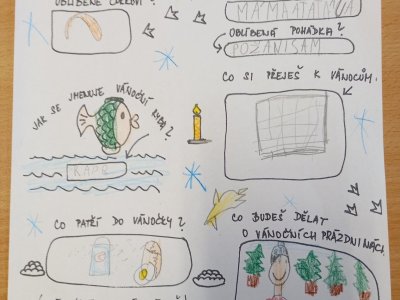 OBLÍBENÉ CUKROVÍ?
OBLÍBENÁ POHÁDKA?
POZÁNISAM
CO SI PŘEJEŠ K VÁNOCŮM.
JAK SE JMENUJE VÁNOČNÍ RYBA?
KAPR
CO PATŘÍ DO VÁNOČKY?
CO BUDEŠ DĚLAT
O VÁNOČNÍCH PRÁZDNINÁCH